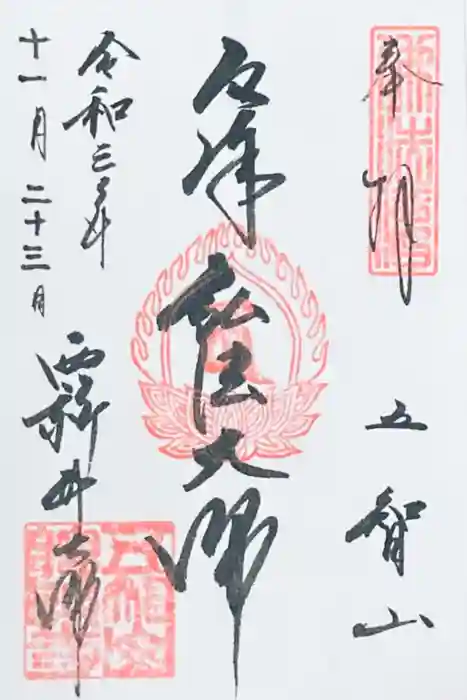 奉拝
五智山
厄除
弘法大師
令和三年
十一月二十三日
西新井大師